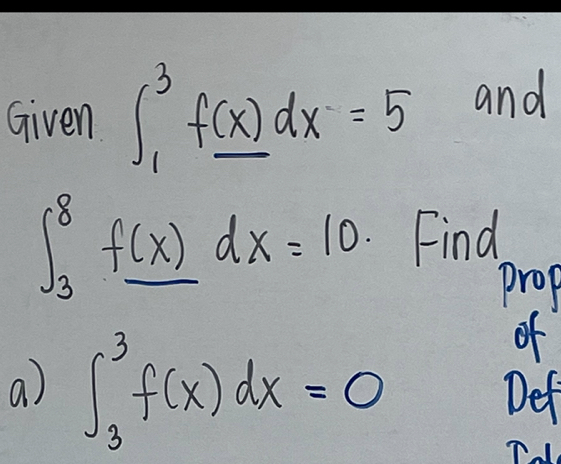 Given ∫₁³ f(x) dx = 5 and
∫₃⁸ f(x) dx = 10. Find
prop
of
a) ∫₃³ f(x) dx = 0
Def